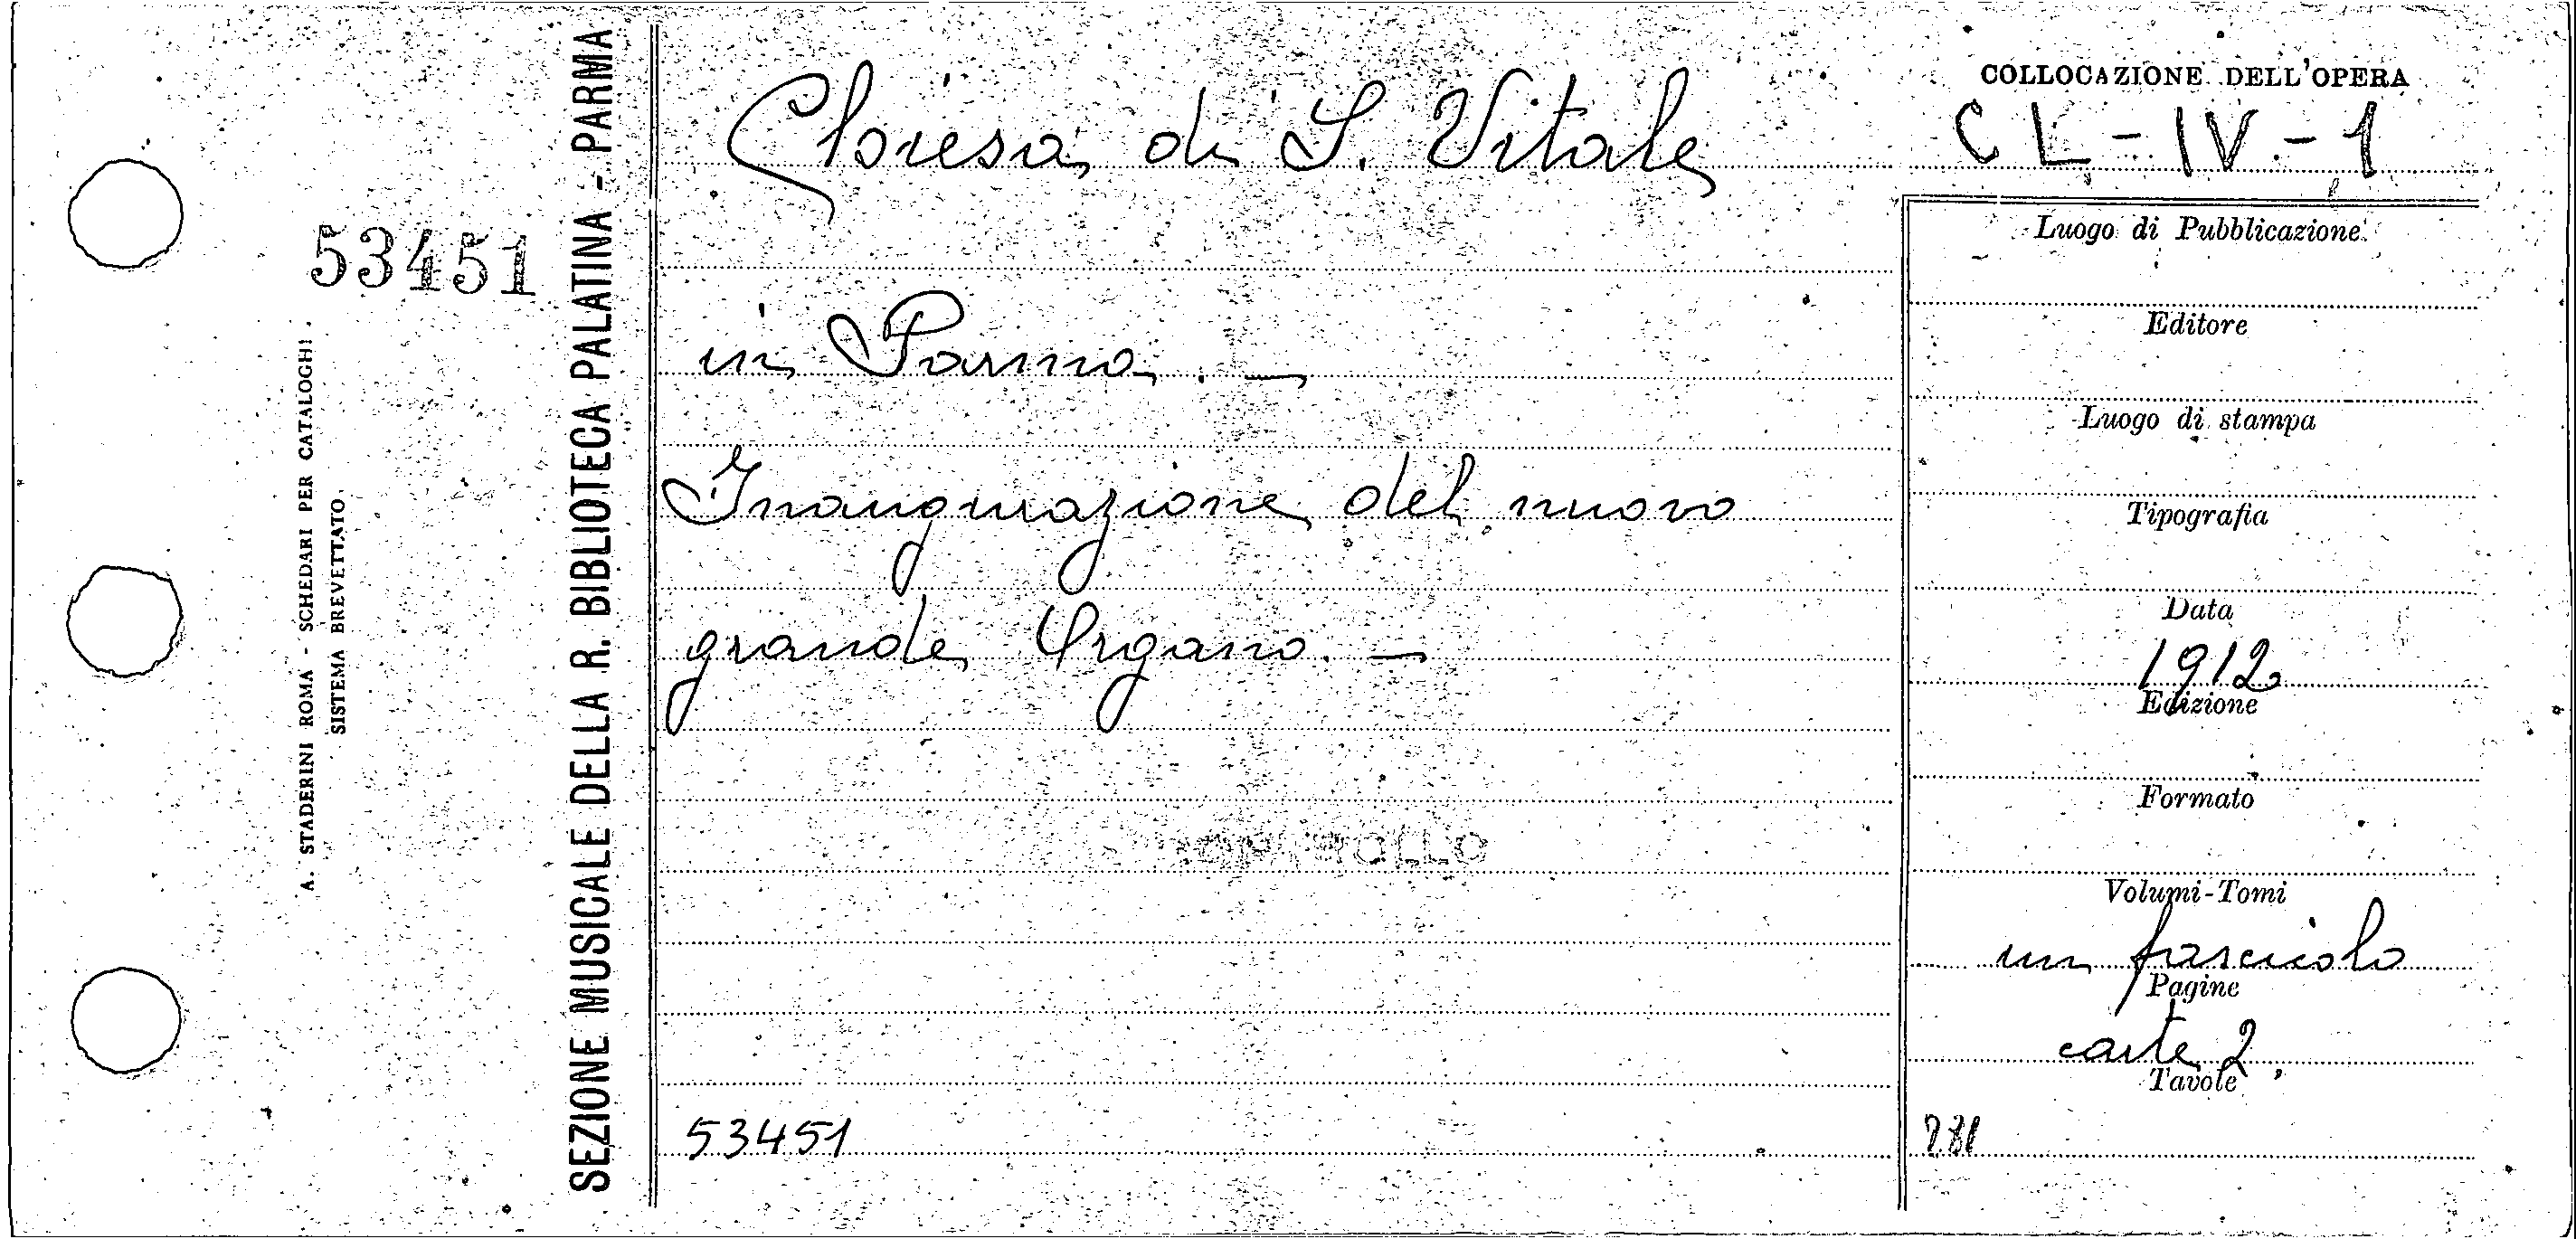 53451
A. STADERINI ROMA - SCHEDARI PER CATALOGHI
SISTEMA BREVETTATO
SEZIONE MUSICALE DELLA R. BIBLIOTECA PALATINA - PARMA
Chiesa di S. Vitale
in Parma. —
Inaugurazione del nuovo
grande Organo. —
CONTROLLO
53451
COLLOCAZIONE DELL'OPERA
CL-IV-1
Luogo di Pubblicazione
Editore
Luogo di stampa
Tipografia
Data
1912
Edizione
Formato
Volumi-Tomi
un fascicolo
Pagine
carte 2
Tavole